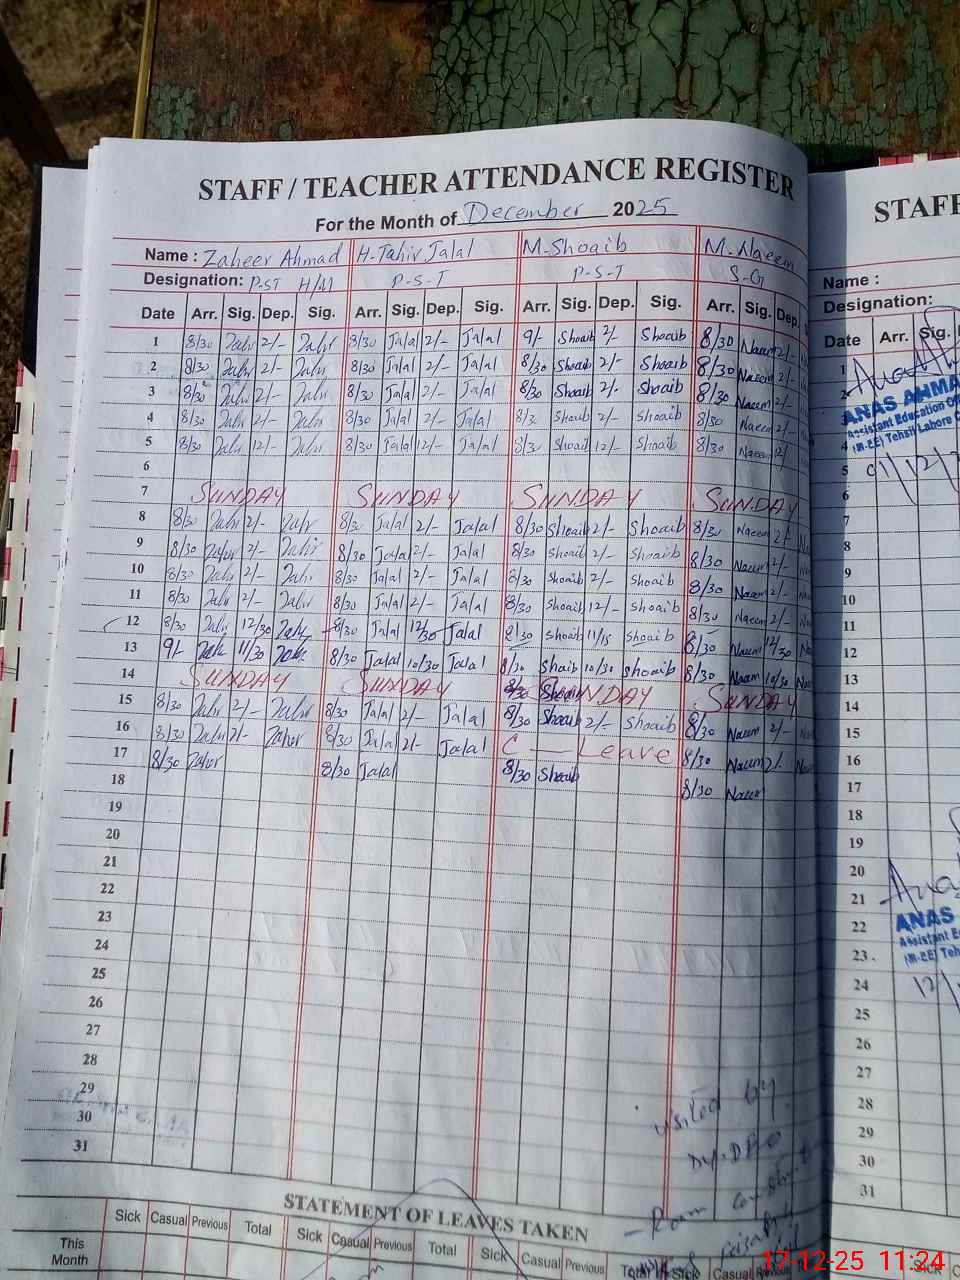 STAFF / TEACHER ATTENDANCE REGISTER
For the Month of December 2025
Name : Zaheer Ahmad H. Tahir Jalal M. Shoaib M. Naeem
Designation: P-ST H/M P-S-T P-S-T S-G
Date Arr. Sig. Dep. Sig. Arr. Sig. Dep. Sig. Arr. Sig. Dep. Sig. Arr. Sig. Dep.
1 8/30 2/- 8/30 Jalal 2/- Jalal 9/- Shoaib 2/- Shoaib 8/30 Naeem 2/-
2 8/30 2/- 8/30 Jalal 2/- Jalal 8/30 Shoaib 2/- Shoaib 8/30 Naeem 2/-
3 8/30 2/- 8/30 Jalal 2/- Jalal 8/30 Shoaib 2/- Shoaib 8/30 Naeem 2/-
4 8/30 2/- 8/30 Jalal 2/- Jalal 8/30 Shoaib 2/- Shoaib 8/30 Naeem 2/-
5 8/30 12/- 8/30 Jalal 12/- Jalal 8/30 Shoaib 12/- Shoaib 8/30 Naeem 12/
6
7 SUNDAY SUNDAY SUNDAY SUNDAY
8 8/30 2/- 8/30 Jalal 2/- Jalal 8/30 Shoaib 2/- Shoaib 8/30 Naeem 2/-
9 8/30 2/- 8/30 Jalal 2/- Jalal 8/30 Shoaib 2/- Shoaib 8/30 Naeem 2/-
10 8/30 2/- 8/30 Jalal 2/- Jalal 8/30 Shoaib 2/- Shoaib 8/30 Naeem 2/-
11 8/30 2/- 8/30 Jalal 2/- Jalal 8/30 Shoaib 12/- Shoaib 8/30 Naeem 2/-
12 8/30 12/30 8/30 Jalal 12/30 Jalal 8/30 Shoaib 11/15 Shoaib 12/30
13 9/- 11/30 8/30 Jalal 10/30 Jalal 8/30 Shoaib 10/30 Shoaib 8/30 Naeem 10/30
14 SUNDAY SUNDAY SUNDAY SUNDAY
15 8/30 2/- 8/30 Jalal 2/- Jalal 8/30 Shoaib 2/- Shoaib 8/30 Naeem 2/-
16 8/30 2/- 8/30 Jalal 2/- Jalal C — Leave 8/30 Naeem 2/-
17 8/30 8/30 Jalal 8/30 Shoaib 8/30 Naeem
18
19
20
21
22
23
24
25
26
27
28
29
30
31
visited by
Dy. DEO
- Room
STATEMENT OF LEAVES TAKEN
Sick Casual Previous Total Sick Casual Previous Total Sick Casual Previous Total Sick Casual Previous
This
Month
STAFF
Name :
Designation:
Date Arr. Sig.
1
2
ANAS AHMA
Assistant Education Of
(M-EE) Tehsil Lahore C
4
5
6
7
8
9
10
11
12
13
14
15
16
17
18
19
20
21
ANAS
22
Assistant E
23
(M-EE) Teh
24
25
26
27
28
29
30
31
17-12-25 11:24